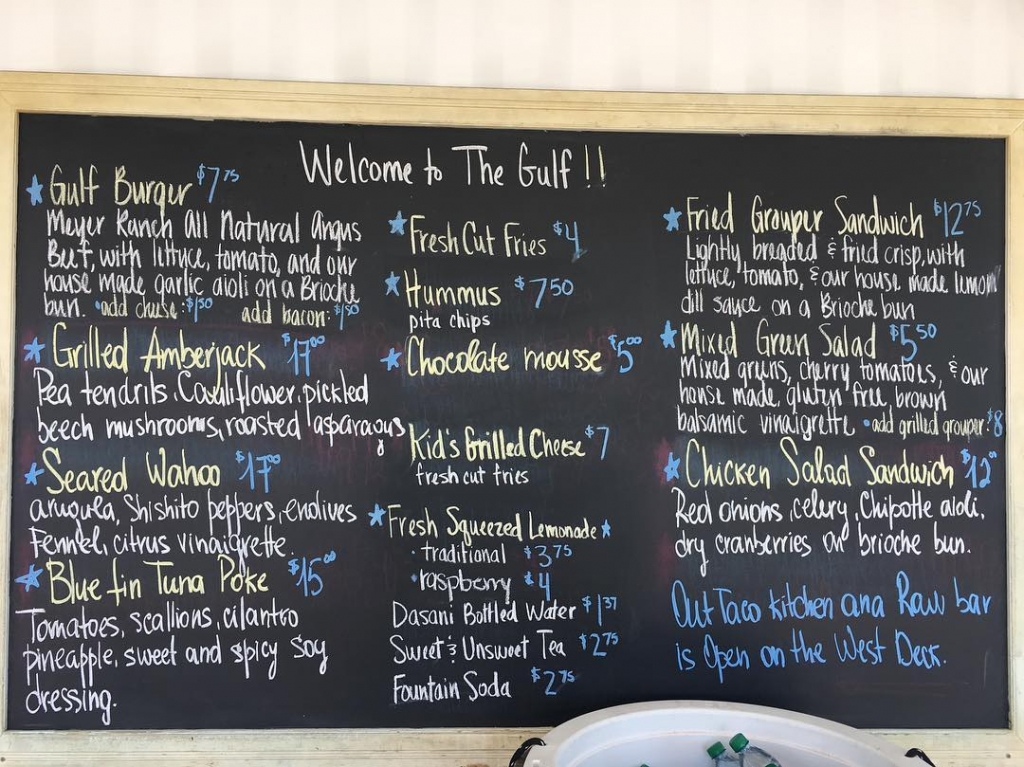 Welcome to The Gulf !!
Gulf Burger $7 75
Meyer Ranch All Natural Angus
Beef, with lettuce, tomato, and our
house made garlic aioli on a Brioche
bun. • add cheese: $1 50 add bacon: $1 50
Grilled Amberjack $17 00
Pea tendrils, Cauliflower, pickled
beech mushrooms, roasted asparagus
Seared Wahoo $17 00
arugula, Shishito peppers, endives
Fennel, citrus vinaigrette.
Blue fin Tuna Poke $15 00
Tomatoes, scallions, cilantro
pineapple, sweet and spicy soy
dressing.
Fresh Cut Fries $4
Hummus $7 50
pita chips
Chocolate mousse $5 00
Kid's Grilled Cheese $7
fresh cut fries
Fresh Squeezed Lemonade
• traditional $3 75
• raspberry $4
Dasani Bottled Water $1 37
Sweet & Unsweet Tea $2 75
Fountain Soda $2 75
Fried Grouper Sandwich $12 75
Lightly breaded & fried crisp, with
lettuce, tomato, & our house made lemon
dill sauce on a Brioche bun
Mixed Green Salad $5 50
Mixed greens, cherry tomatoes, & our
house made, gluten free brown
balsamic vinaigrette • add grilled grouper: $8
Chicken Salad Sandwich $12
Red onions, celery, Chipotle aioli,
dry cranberries on brioche bun.
Our Taco kitchen and Raw bar
is Open on the West Deck.